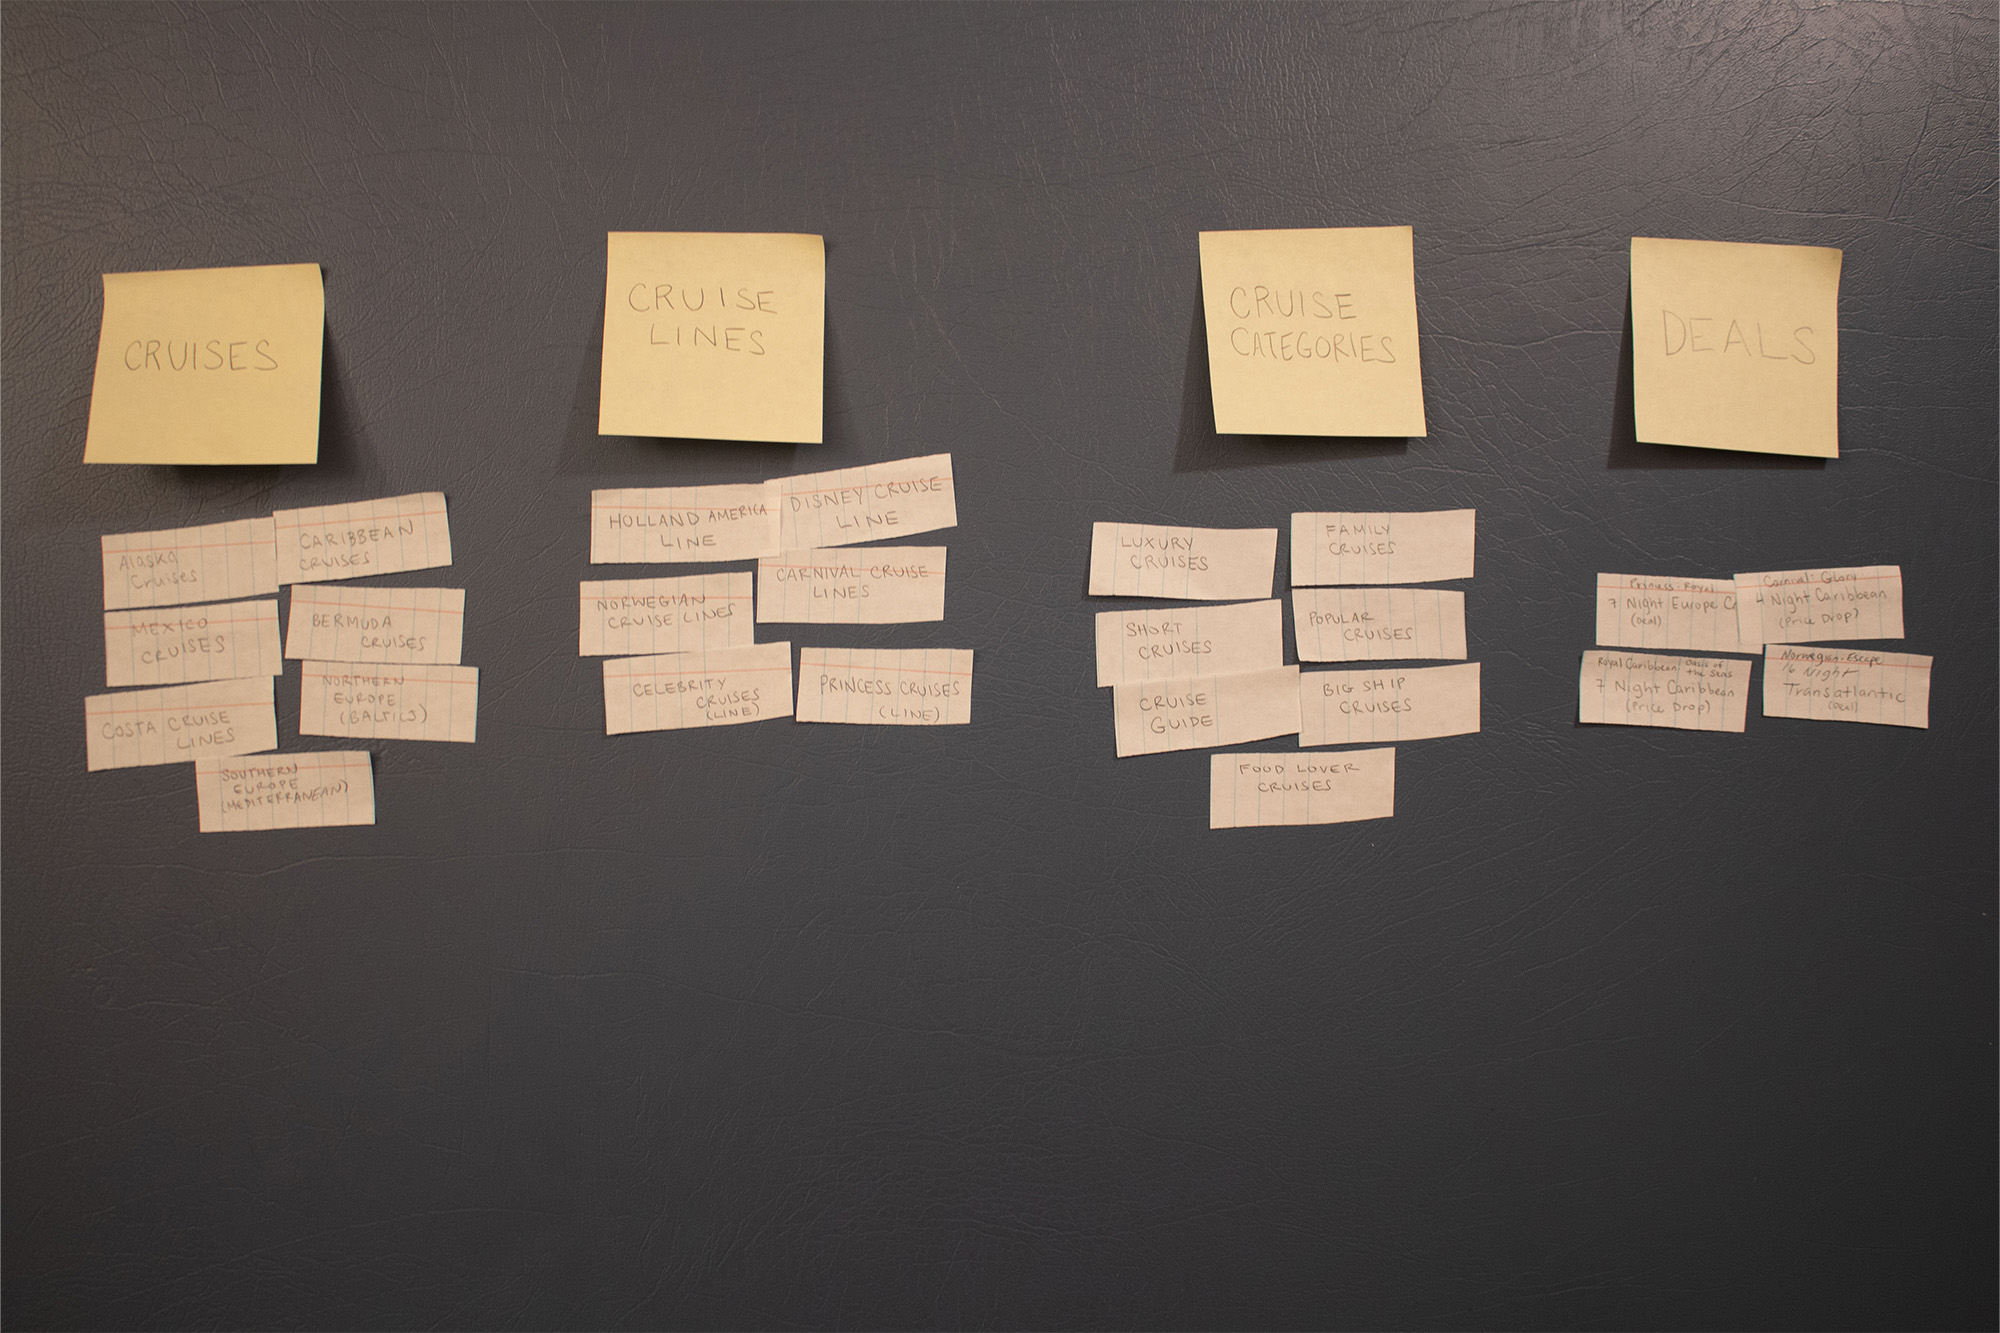 CRUISES
Alaska
Cruises
CARIBBEAN
CRUISES
MEXICO
CRUISES
BERMUDA
CRUISES
COSTA CRUISE
LINES
NORTHERN
EUROPE
(BALTICS)
SOUTHERN
EUROPE
(MEDITERRANEAN)
CRUISE
LINES
HOLLAND AMERICA
LINE
DISNEY CRUISE
LINE
NORWEGIAN
CRUISE LINES
CARNIVAL CRUISE
LINES
CELEBRITY
CRUISES
(LINE)
PRINCESS CRUISES
(LINE)
CRUISE
CATEGORIES
LUXURY
CRUISES
FAMILY
CRUISES
SHORT
CRUISES
POPULAR
CRUISES
CRUISE
GUIDE
BIG SHIP
CRUISES
FOOD LOVER
CRUISES
DEALS
Princess: Royal
7 Night Europe
(Deal)
Carnival: Glory
4 Night Caribbean
(Price Drop)
Royal Caribbean: Oasis of
the Seas
7 Night Caribbean
(Price Drop)
Norwegian: Escape
16 Night
Transatlantic
(Deal)